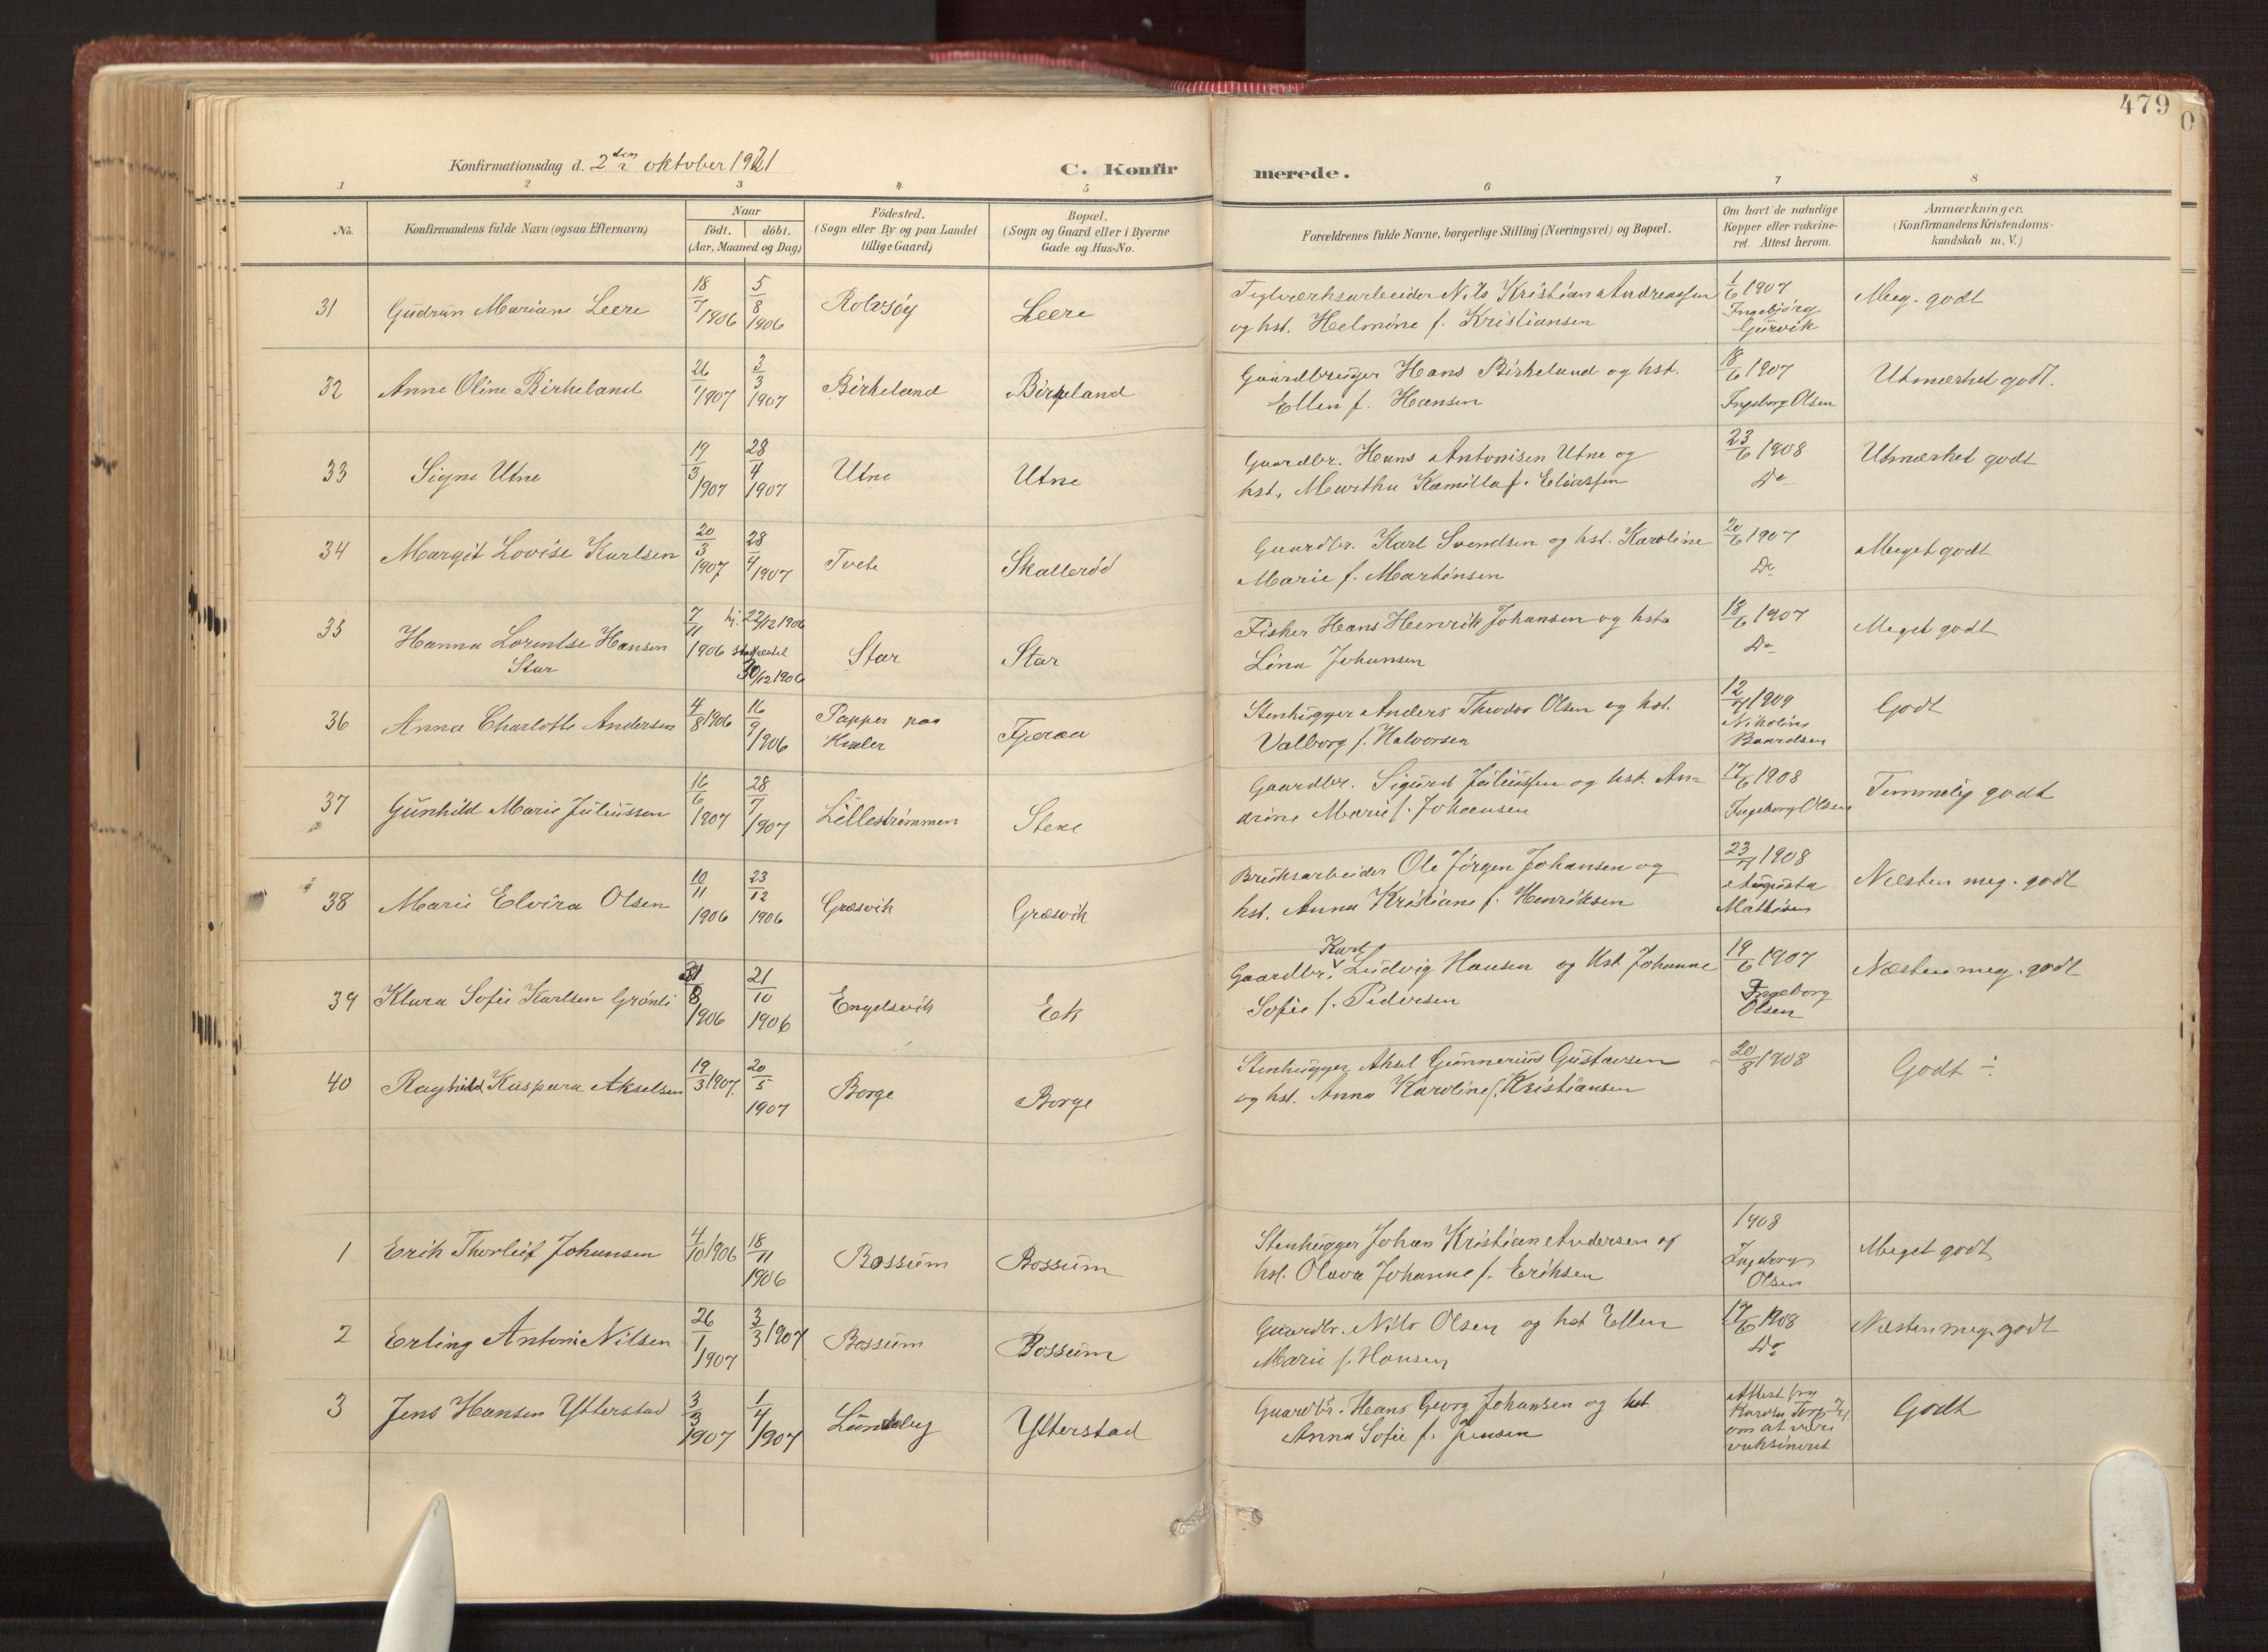 479
Konfirmationsdag d. 2den oktober 1921
C. Konfirmerede.
1 2 3 4 5 6 7 8
No.
Konfirmandens fulde Navn (ogsaa Efternavn)
Naar
födt. döbt.
(Aar, Maaned og Dag)
Födested.
(Sogn eller By og paa Landet
tillige Gaard)
Bopæl.
(Sogn og Gaard eller i Byerne
Gade og Hus-No.
Forældrenes fulde Navne, borgerlige Stilling (Næringsvei) og Bopæl.
Om havt de naturlige
Kopper eller vakcine-
ret. Attest herom.
Anmærkninger.
(Konfirmandens Kristendoms-
kundskab m. V.)
31 Gudrun Mariane Leere 18/7 1906 5/8 1906 Rolvsöy Leere
Teglverksarbeider Nils Kristian Andreassen
og hst. Helmine f. Kristiansen
1/6 1907
Ingebjörg
Gurvik
Meg. godt
32 Anne Oline Birkeland 26/1 1907 3/3 1907 Birkeland Birkeland
Gaardbruger Hans Birkeland og hst.
Ellen f. Hansen
18/6 1907
Ingeborg Olsen
Utmerket godt.
33 Signe Utne 19/3 1907 28/4 1907 Utne Utne
Gaardbr. Hans Antonisen Utne og
hst. Martha Kamilla f. Eliassen
23/6 1908
Do
Utmerket godt
34 Margit Lovise Karlsen 20/3 1907 28/4 1907 Tvete Skalleröd
Gaardbr. Karl Svendsen og hst. Karoline
Marie f. Martinsen
20/6 1907
Do
Meget godt
35 Hanna Lorentse Hansen
Star
7/11 1906 hj. 22/12 1906
stadfestet
30/12 1906
Star Star
Fisker Hans Henrik Johansen og hst.
Lina Johansen
18/6 1907
Do
Meget godt
36 Anna Charlotte Andersen 4/8 1906 16/9 1906 Papper paa
Hvaler
Fjeraa
Stenhugger Anders Theodor Olsen og hst.
Valborg f. Halvorsen
12/7 1909
Nikoline
Baardsen
Godt
37 Gunhild Marie Juliussen 16/6 1907 28/7 1907 Lillestrømmen Stene
Gaardbr. Sigurd Juliussen og hst. An-
drine Marie f. Johansen
17/6 1908
Ingeborg Olsen
Temmelig godt
38 Marie Elvira Olsen 10/11 1906 23/12 1906 Græsvik Græsvik
Bruksarbeider Ole Jörgen Johansen og
hst. Anna Kristiane f. Henriksen
23/7 1908
Augusta
Mathisen
Næsten meg. godt
39 Klara Sofie Karlsen Grönli 31/8 1906 21/10 1906 Engelsvik Ek
Gaardbr. Karl Ludvig Hansen og hst Johanne
Sofie f. Pedersen
19/6 1907
Ingeborg
Olsen
Næsten meg. godt
40 Raghild Kaspara Akselsen 19/3 1907. 20/5 1907 Borge Borge
Stenhugger Aksel Gunnerius Gustavsen
og hst. Anna Karoline f. Kristiansen
20/8 1908
Godt ÷
1 Erik Thorleif Johansen 4/10 1906 18/11 1906 Bossum Bossum
Stenhugger Johan Kristian Andersen og
hst. Olava Johanne f. Eriksen
1908
Ingeborg
Olsen
Meget godt
2 Erling Antoni Nilsen 26/1 1907 3/3 1907 Bossum Bossum
Gaardbr. Nils Olsen og hst Ellen
Marie f. Hansen
17/6 1908
Do
Næsten meg. godt
3 Jens Hansen Ytterstad 3/3 1907 1/4 1907 Lundeby Ytterstad
Gaardbr. Hans Georg Johansen og hst
Anna Sofie f. Jensen
Attest fra
om at være
vaksineret
Godt